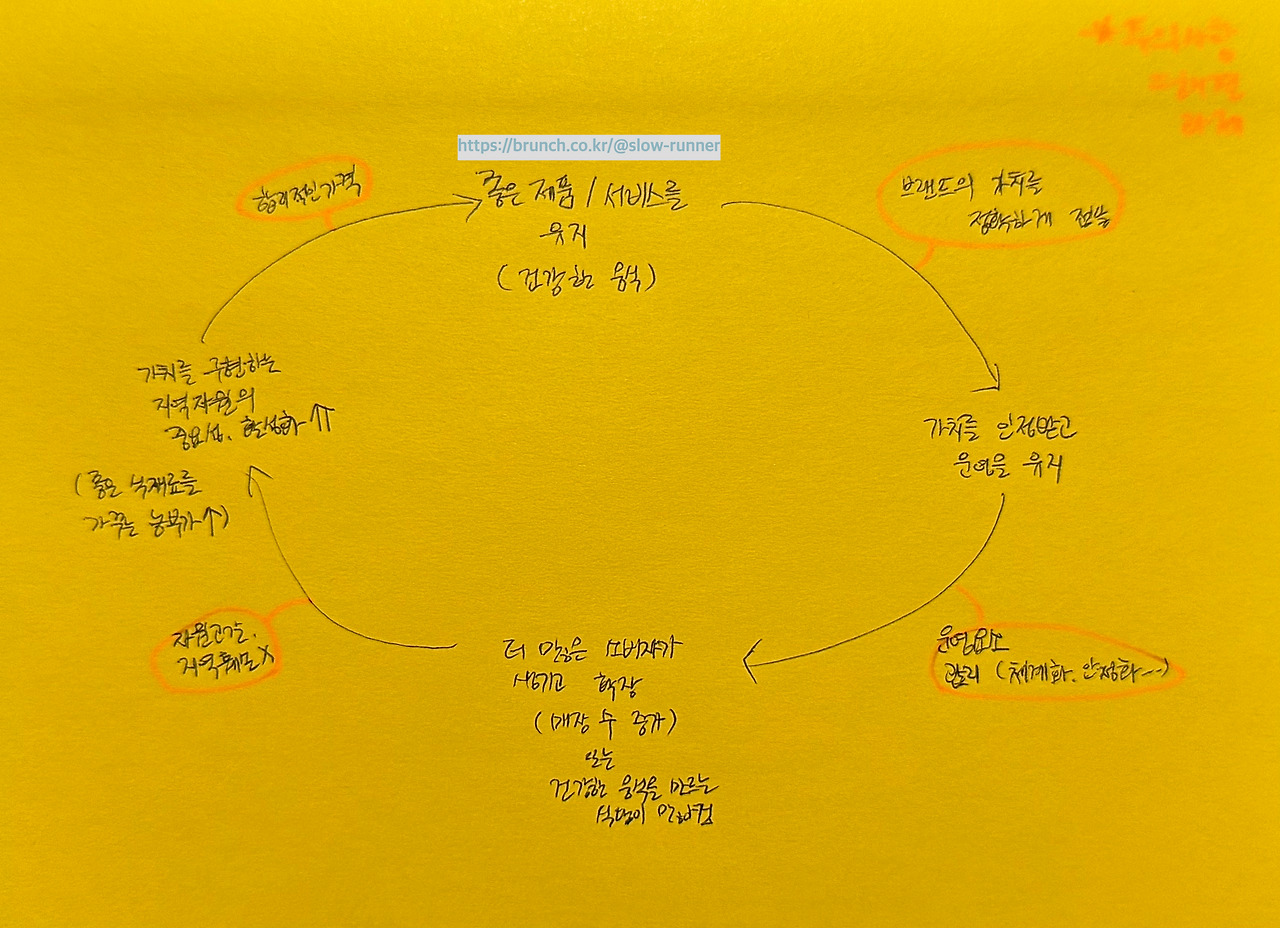 https://brunch.co.kr/@slow-runner
좋은 제품 / 서비스를
유지
(건강한 음식)
브랜드의 가치를
정확하게 전달
가치를 인정받고
운영을 유지
운영요소
관리 (체계화, 안정화…)
더 많은 소비자가
생기고 확장
(매장 수 증가)
또는
건강한 음식을 만드는
식당이 많아짐
자원고갈,
지역훼손X
가치를 구현하는
지역자원의
중요성, 활성화⇑
(좋은 식재료를
가꾸는 농부가↑)
합리적인 가격
*주의사항